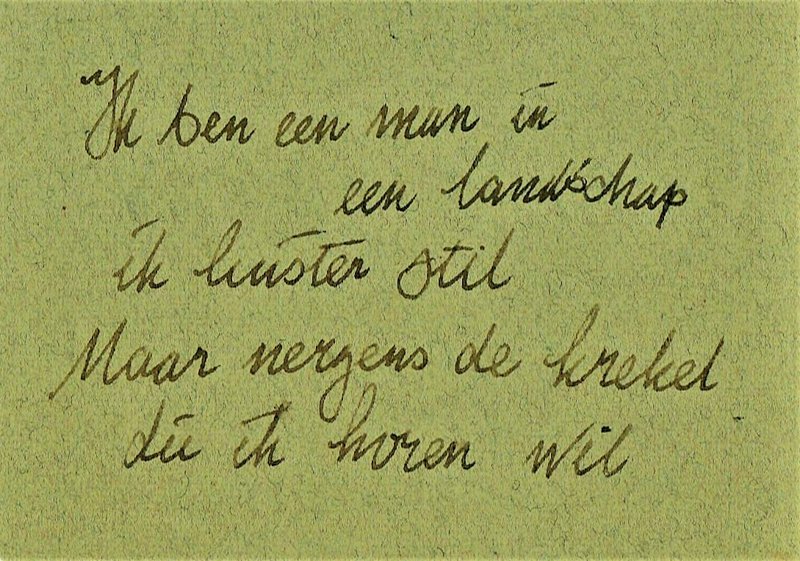 Ik ben een man in
een landschap
ik luister stil
Maar nergens de krekel
die ik horen wil